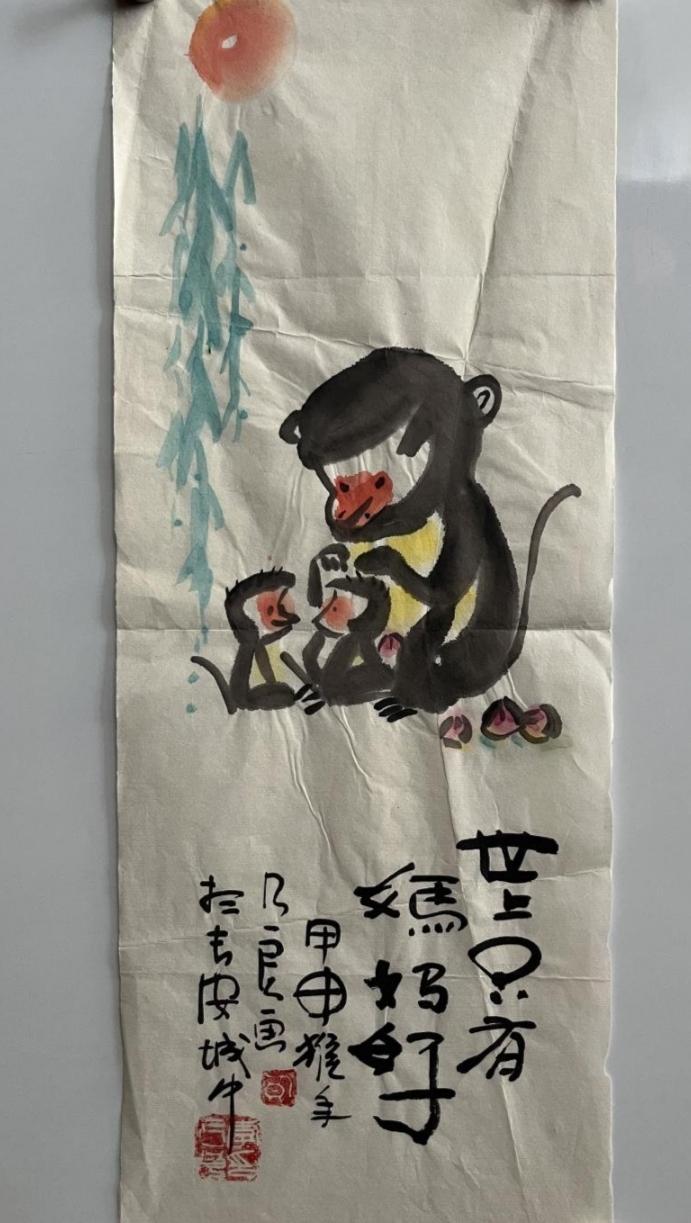 世上只有
媽妈好
甲申猴年
乃良画
於长安城中